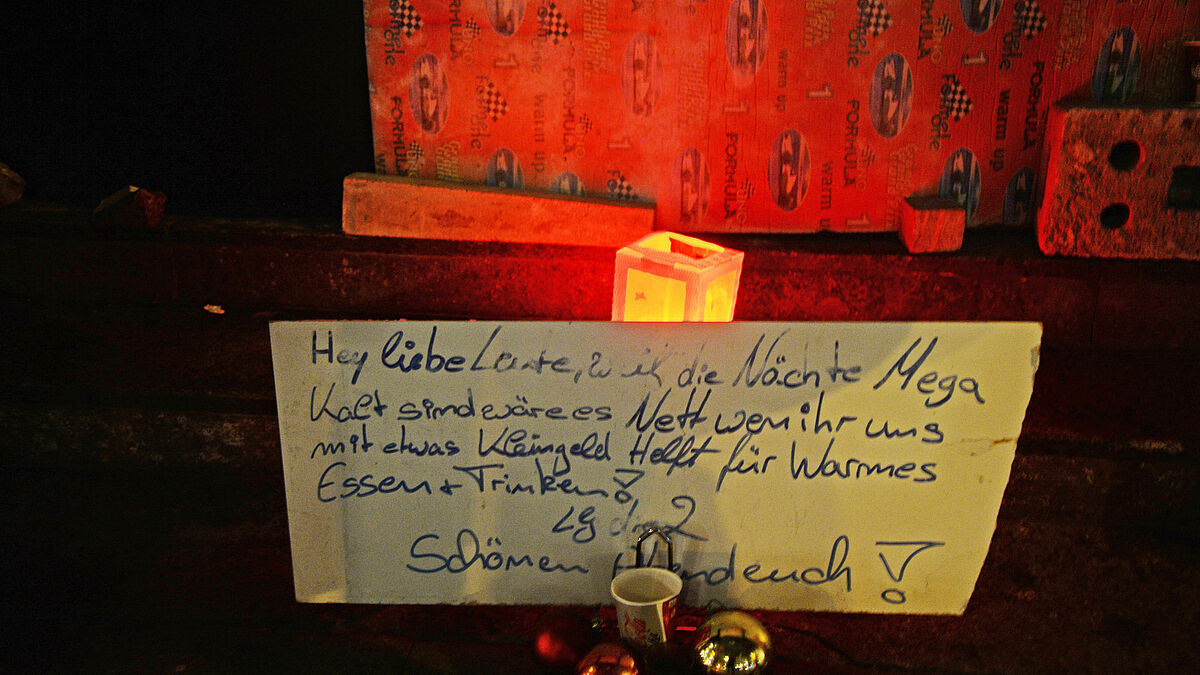 Formel Eins
FORMULA 1
warm up
Hey liebe Leute, weil die Nächte Mega
Kalt sind wäre es Nett wen ihr uns
mit etwas Kleingeld Helft für Warmes
Essen + Trinken!
LG die 2
Schönen Abend euch !